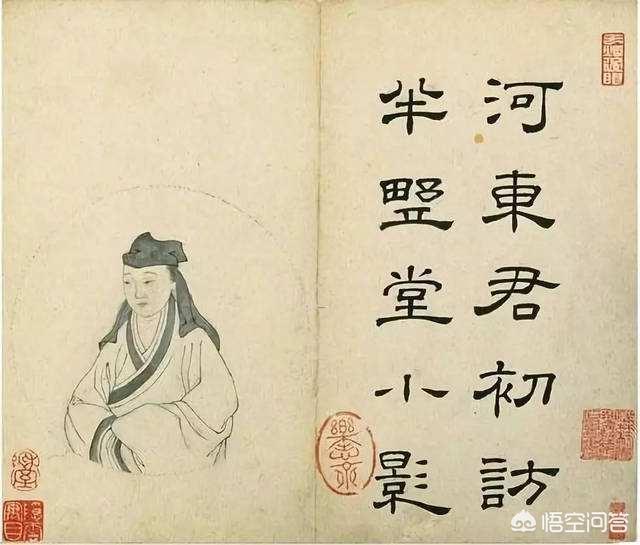 河東君初訪
半野堂小影
悟空问答